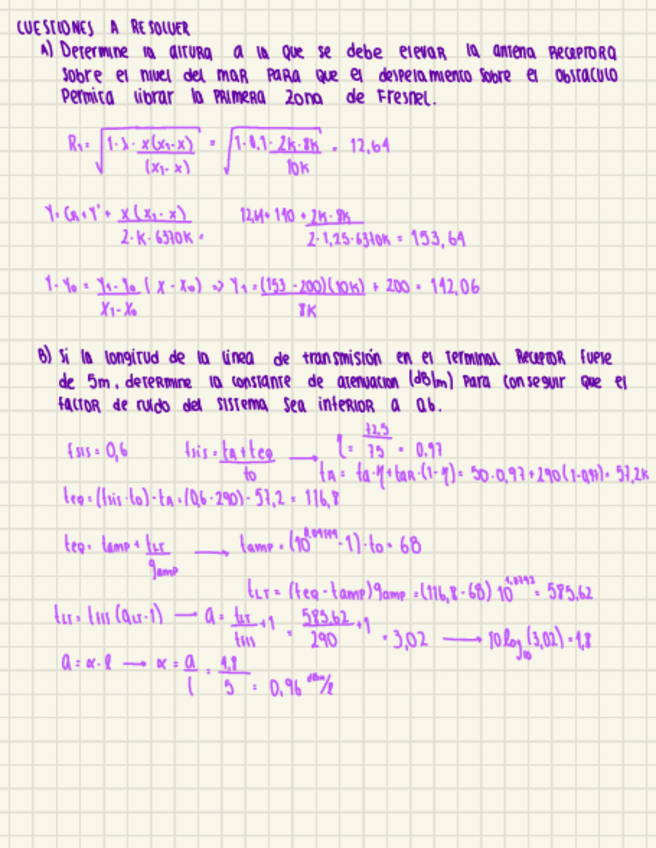 CUESTIONES A RESOLVER
A) Determine la altura a la que se debe elevar la antena receptora
sobre el nivel del mar para que el despejamiento sobre el obstáculo
permita librar la primera zona de Fresnel.
R₁ = √(1·λ · x(x₁-x) / (x₁-x)) = √(1·0,1 · 2K·8K / 10K) = 12,64
Y = CR + Y' + x(x₁-x) / 2·K·6370K = 12,64 + 140 + 2K·8K / 2·1,25·6370K = 153,64
Y - Y₀ = Y₁-Y₀ / X₁-X₀ (x - x₀) => Y₁ = (153-200)(10K) / 8K + 200 = 142,06
B) Si la longitud de la línea de transmisión en el terminal receptor fuese
de 5m, determine la constante de atenuación (dB/m) para conseguir que el
factor de ruido del sistema sea inferior a 0,6.
fsis = 0,6 fsis = ta+teq / to → η = 72,5 / 75 = 0,97
tA = ta·η + tar·(1-η) = 50·0,97 + 290(1-0,97) = 57,2K
teq = (fsis·to) - tA = (0,6·290) - 57,2 = 116,8
teq = tamp + tLT / gamp → tamp = (10 -1)·to = 68
tLT = (teq - tamp)gamp = (116,8 - 68) 10 = 585,62
→ a = +1 = 585,62 / 290 +1 = 3,02 → 10 log₁₀(3,02) = 4,8
a = α·l → α = a / l = 4,8 / 5 = 0,96